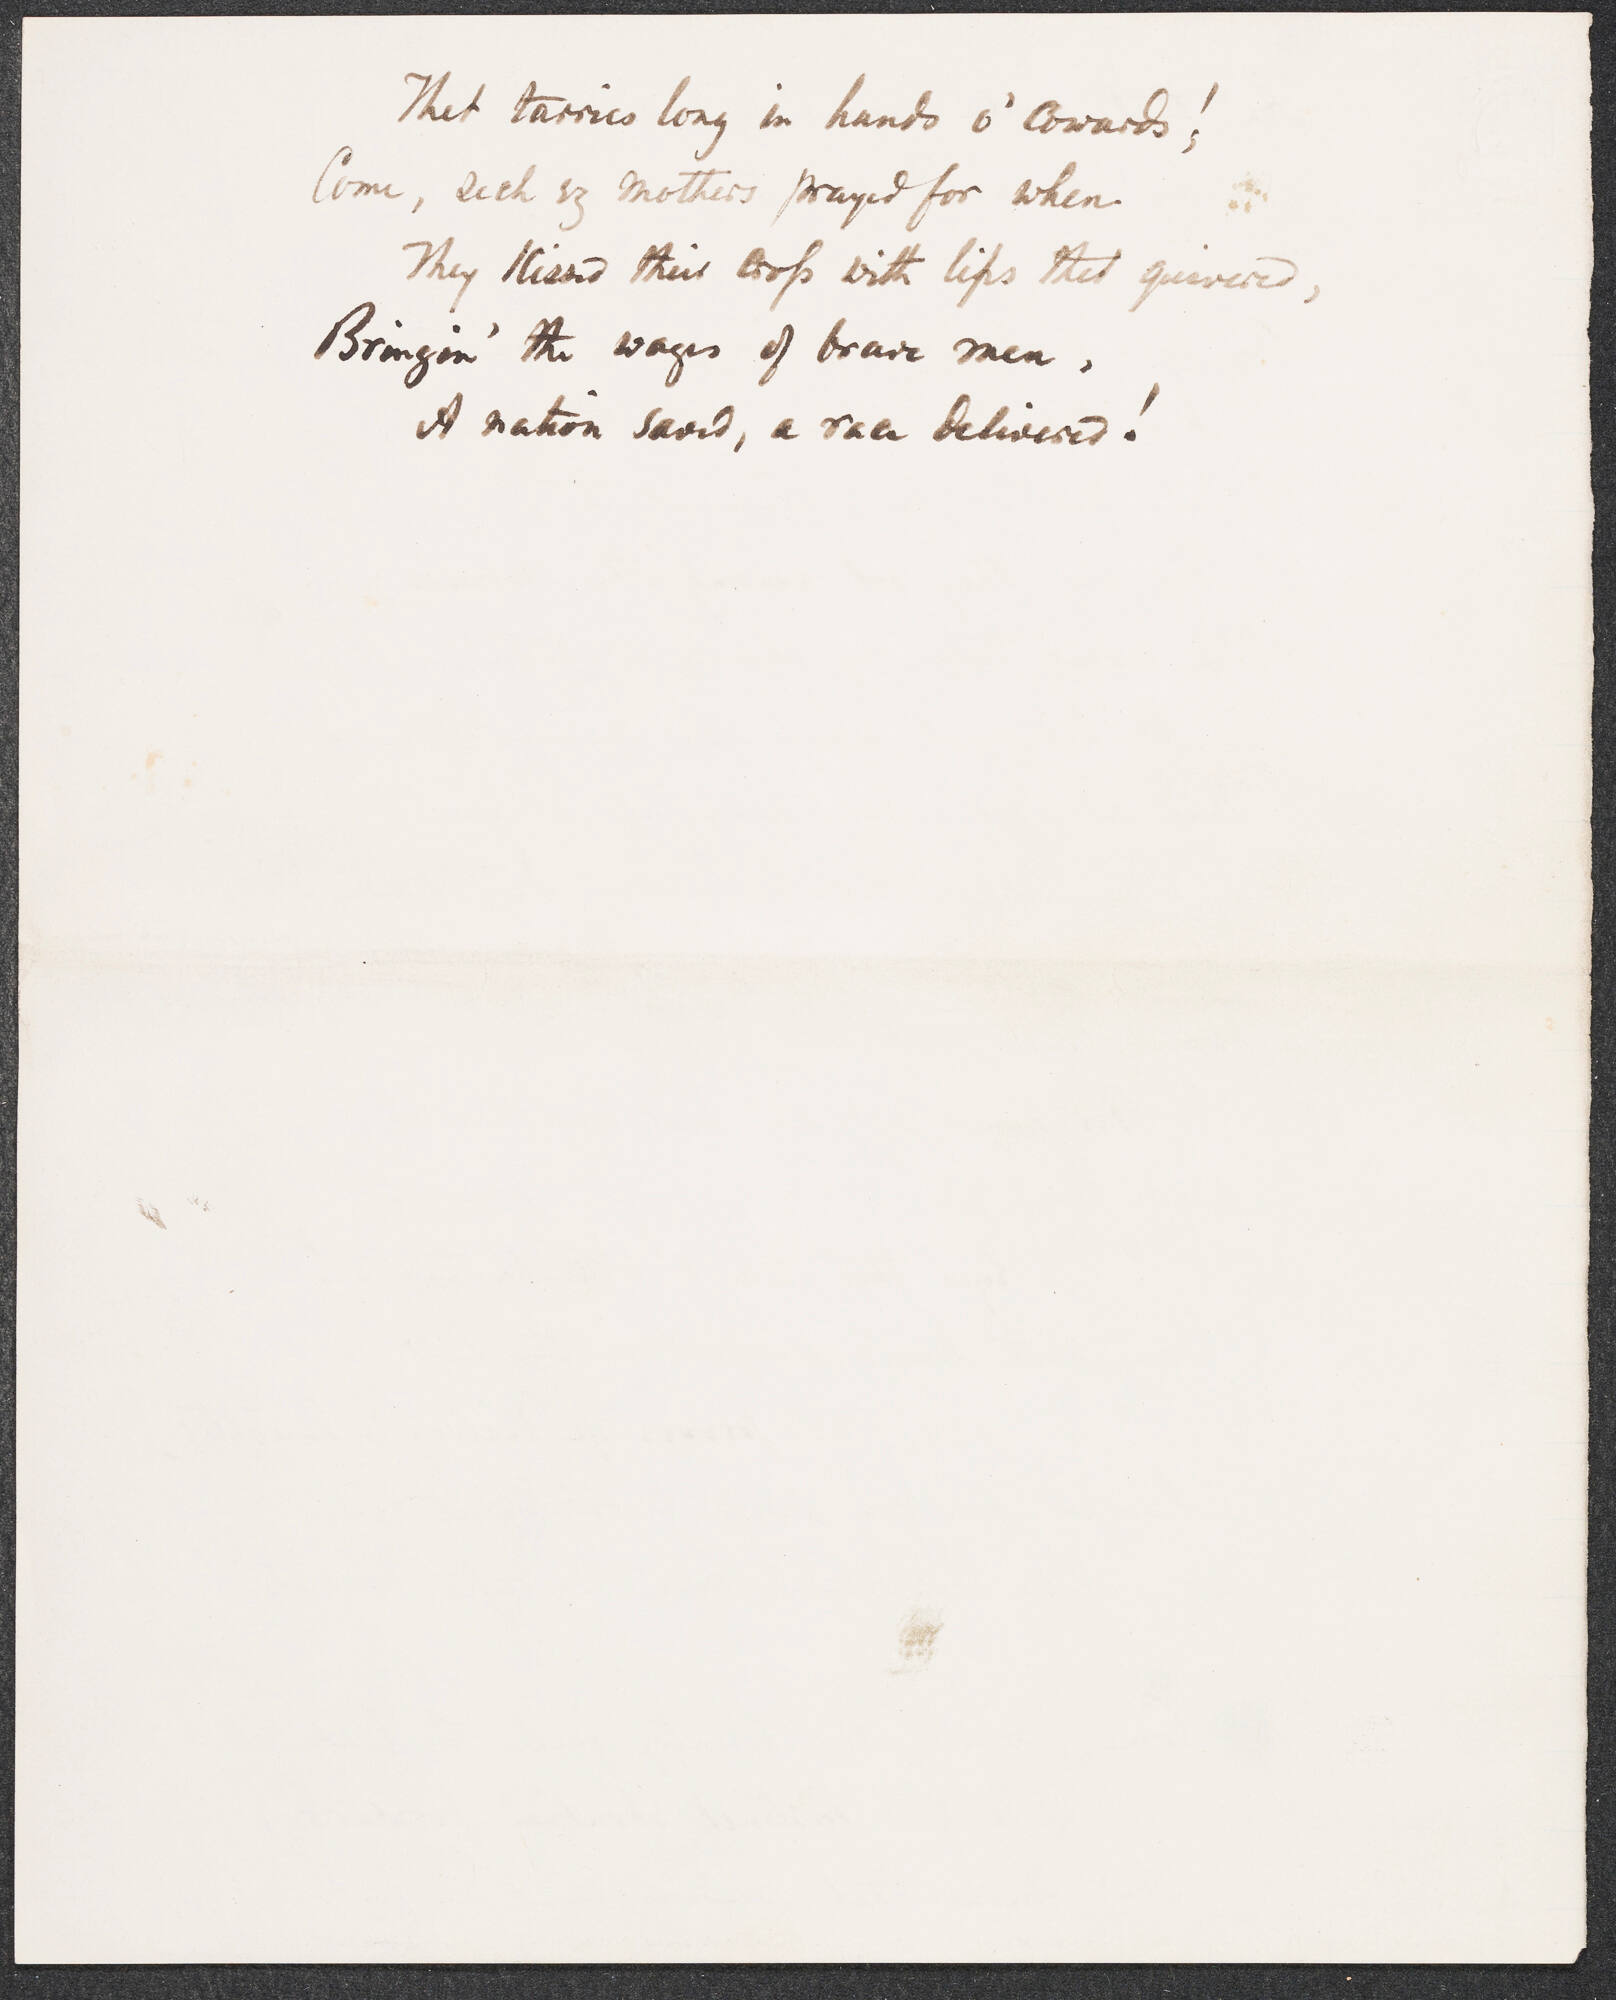 Thet tarries long in hands o' cowards!
Come, sech ez mothers prayed for when
They kissed their cross with lips thet quivered,
Bringin' the wages of brave men,
A nation saved, a race delivered!